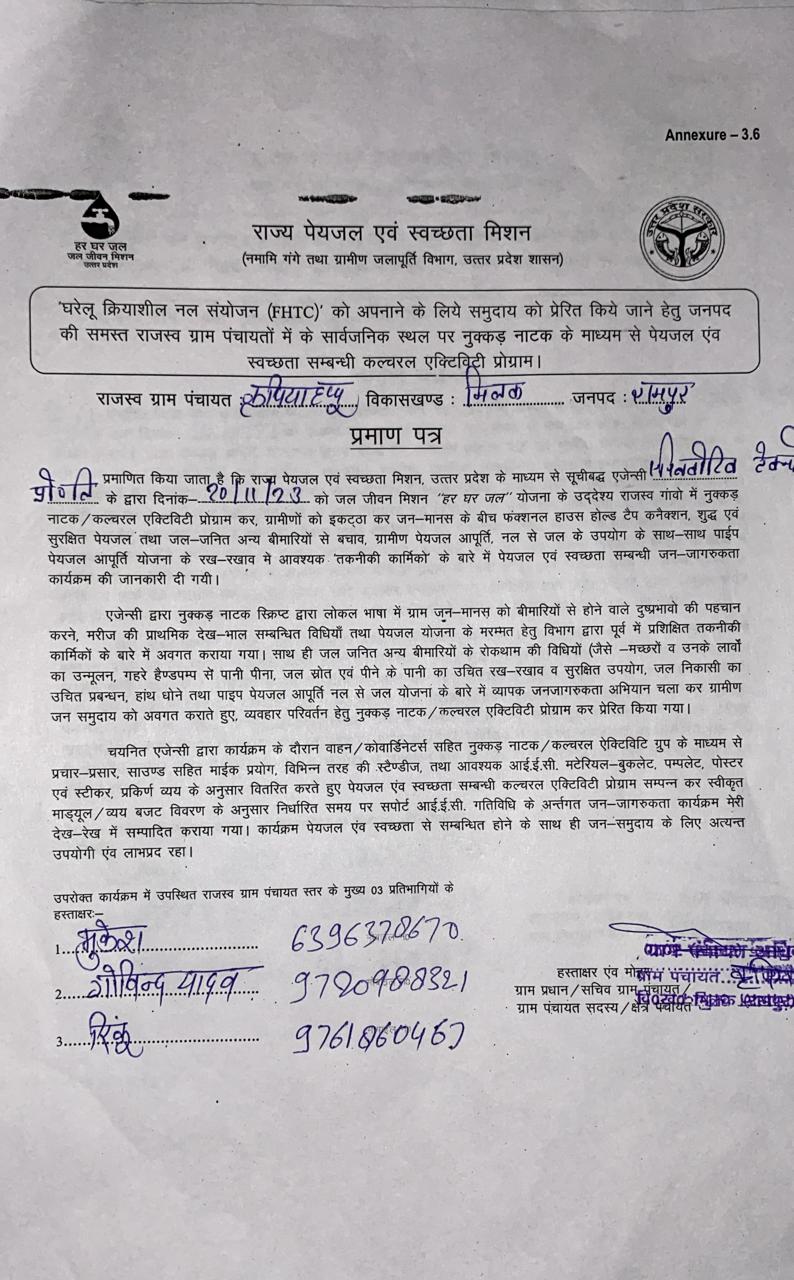 Annexure – 3.6
हर घर जल
जल जीवन मिशन
उत्तर प्रदेश
राज्य पेयजल एवं स्वच्छता मिशन
(नमामि गंगे तथा ग्रामीण जलापूर्ति विभाग, उत्तर प्रदेश शासन)
उत्तर प्रदेश सरकार
'घरेलू क्रियाशील नल संयोजन (FHTC)' को अपनाने के लिये समुदाय को प्रेरित किये जाने हेतु जनपद
की समस्त राजस्व ग्राम पंचायतों में के सार्वजनिक स्थल पर नुक्कड़ नाटक के माध्यम से पेयजल एंव
स्वच्छता सम्बन्धी कल्चरल एक्टिविटी प्रोग्राम।
राजस्व ग्राम पंचायत विकासखण्ड : मिलक जनपद : रामपुर
प्रमाण पत्र
प्रमाणित किया जाता है कि राज्य पेयजल एवं स्वच्छता मिशन, उत्तर प्रदेश के माध्यम से सूचीबद्ध एजेन्सी
प्रा० लि० के द्वारा दिनांक- 20/11/23 को जल जीवन मिशन "हर घर जल" योजना के उद्देश्य राजस्व गांवो में नुक्कड़
नाटक/कल्चरल एक्टिविटी प्रोग्राम कर, ग्रामीणों को इकट्ठा कर जन–मानस के बीच फंक्शनल हाउस होल्ड टैप कनैक्शन, शुद्ध एवं
सुरक्षित पेयजल तथा जल–जनित अन्य बीमारियों से बचाव, ग्रामीण पेयजल आपूर्ति, नल से जल के उपयोग के साथ–साथ पाईप
पेयजल आपूर्ति योजना के रख–रखाव में आवश्यक 'तकनीकी कार्मिको' के बारे में पेयजल एवं स्वच्छता सम्बन्धी जन–जागरुकता
कार्यक्रम की जानकारी दी गयी।
एजेन्सी द्वारा नुक्कड़ नाटक स्क्रिप्ट द्वारा लोकल भाषा में ग्राम जन–मानस को बीमारियों से होने वाले दुष्प्रभावो की पहचान
करने, मरीज की प्राथमिक देख–भाल सम्बन्धित विधियाँ तथा पेयजल योजना के मरम्मत हेतु विभाग द्वारा पूर्व में प्रशिक्षित तकनीकी
कार्मिकों के बारे में अवगत कराया गया। साथ ही जल जनित अन्य बीमारियों के रोकथाम की विधियों (जैसे –मच्छरों व उनके लार्वो
का उन्मूलन, गहरे हैण्डपम्प से पानी पीना, जल स्रोत एवं पीने के पानी का उचित रख–रखाव व सुरक्षित उपयोग, जल निकासी का
उचित प्रबन्धन, हांथ धोने तथा पाइप पेयजल आपूर्ति नल से जल योजना के बारे में व्यापक जनजागरुकता अभियान चला कर ग्रामीण
जन समुदाय को अवगत कराते हुए, व्यवहार परिवर्तन हेतु नुक्कड़ नाटक/कल्चरल एक्टिविटी प्रोग्राम कर प्रेरित किया गया।
चयनित एजेन्सी द्वारा कार्यक्रम के दौरान वाहन/कोवार्डिनेटर्स सहित नुक्कड़ नाटक/कल्चरल ऐक्टिविटि ग्रुप के माध्यम से
प्रचार–प्रसार, साउण्ड सहित माईक प्रयोग, विभिन्न तरह की स्टैण्डीज, तथा आवश्यक आई.ई.सी. मटेरियल–बुकलेट, पम्पलेट, पोस्टर
एवं स्टीकर, प्रकिर्ण व्यय के अनुसार वितरित करते हुए पेयजल एंव स्वच्छता सम्बन्धी कल्चरल एक्टिविटी प्रोग्राम सम्पन्न कर स्वीकृत
माड्यूल/व्यय बजट विवरण के अनुसार निर्धारित समय पर सपोर्ट आई.ई.सी. गतिविधि के अर्न्तगत जन–जागरुकता कार्यक्रम मेरी
देख–रेख में सम्पादित कराया गया। कार्यक्रम पेयजल एंव स्वच्छता से सम्बन्धित होने के साथ ही जन–समुदाय के लिए अत्यन्त
उपयोगी एंव लाभप्रद रहा।
उपरोक्त कार्यक्रम में उपस्थित राजस्व ग्राम पंचायत स्तर के मुख्य 03 प्रतिभागियों के
हस्ताक्षरः–
1. मुकेश 6396378670
2. गोविन्द यादव 9720988321
3. रिंकू
हस्ताक्षर एंव
ग्राम पंचायत
ग्राम प्रधान/सचिव ग्राम पंचायत/
ग्राम पंचायत सदस्य/क्षेत्र पंचायत